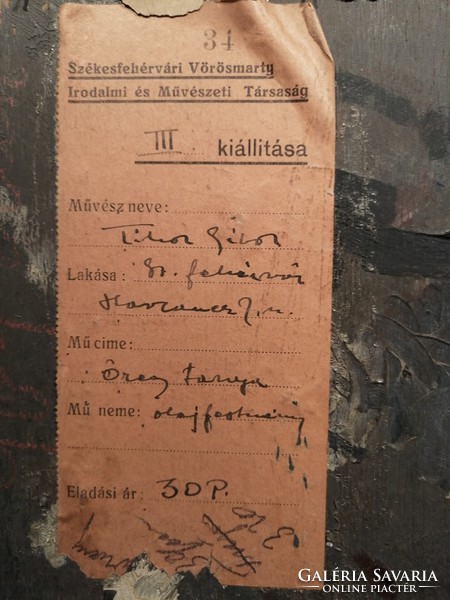 34
Székesfehérvári Vörösmarty
Irodalmi és Művészeti Társaság
III. kiállítása
Művész neve:
Tibor
Lakása: Sz. fehérvár
Mű címe:
Öreg tanya
Mű neme: olajfestmény
Eladási ár: 30 P.
GALÉRIA SAVARIA
ONLINE PIACTÉR